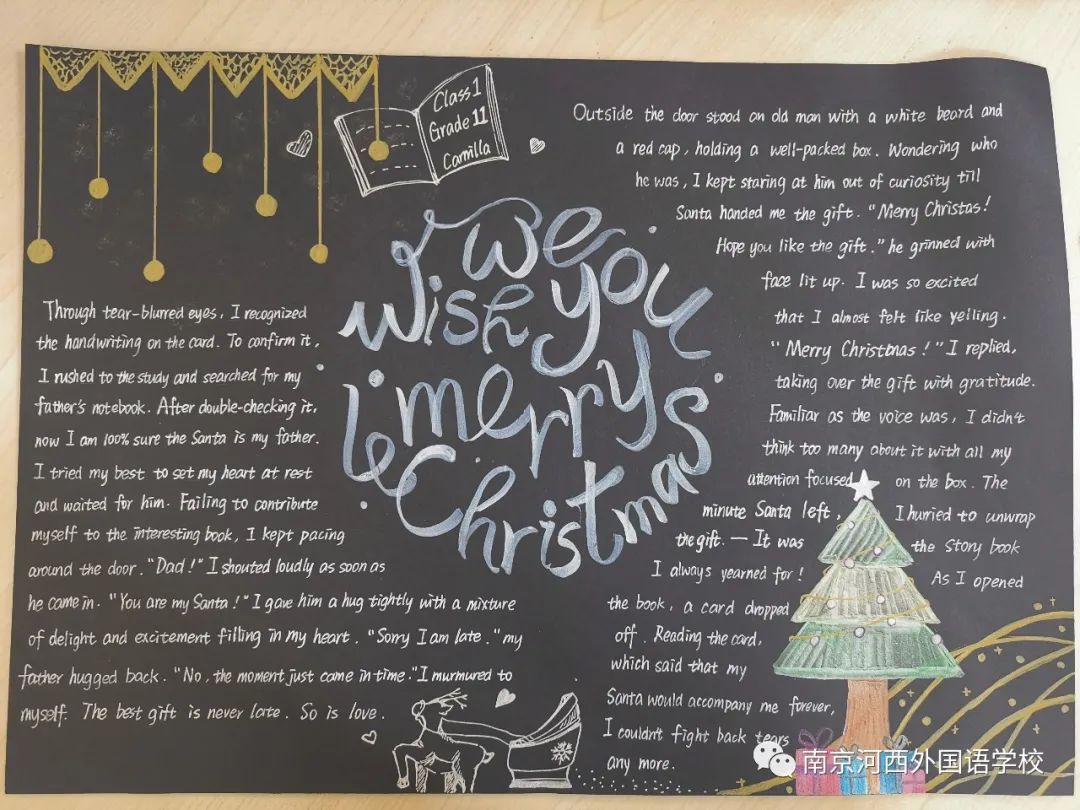 Class 1
Grade 11
Camilla
We
Wish you
merry
Christmas
Outside the door stood an old man with a white beard and
a red cap, holding a well-packed box. Wondering who
he was, I kept staring at him out of curiosity till
Santa handed me the gift. "Merry Christas!
Hope you like the gift." he grinned with
face lit up. I was so excited
that I almost felt like yelling.
"Merry Christmas!" I replied,
taking over the gift with gratitude.
Familiar as the voice was, I didn't
think too many about it with all my
attention focused on the box. The
minute Santa left, I hurried to unwrap
the gift. — It was the story book
I always yearned for! As I opened
the book, a card dropped
off. Reading the card,
which said that my
Santa would accompany me forever,
I couldn't fight back tears
any more.
Through tear-blurred eyes, I recognized
the handwriting on the card. To confirm it,
I rushed to the study and searched for my
father's notebook. After double-checking it,
now I am 100% sure the Santa is my father.
I tried my best to set my heart at rest
and waited for him. Failing to contribute
myself to the interesting book, I kept pacing
around the door. "Dad!" I shouted loudly as soon as
he came in. "You are my Santa!" I gave him a hug tightly with a mixture
of delight and excitement filling in my heart. "Sorry I am late." my
father hugged back. "No, the moment just came in time." I murmured to
myself. The best gift is never late. So is love.
南京河西外国语学校